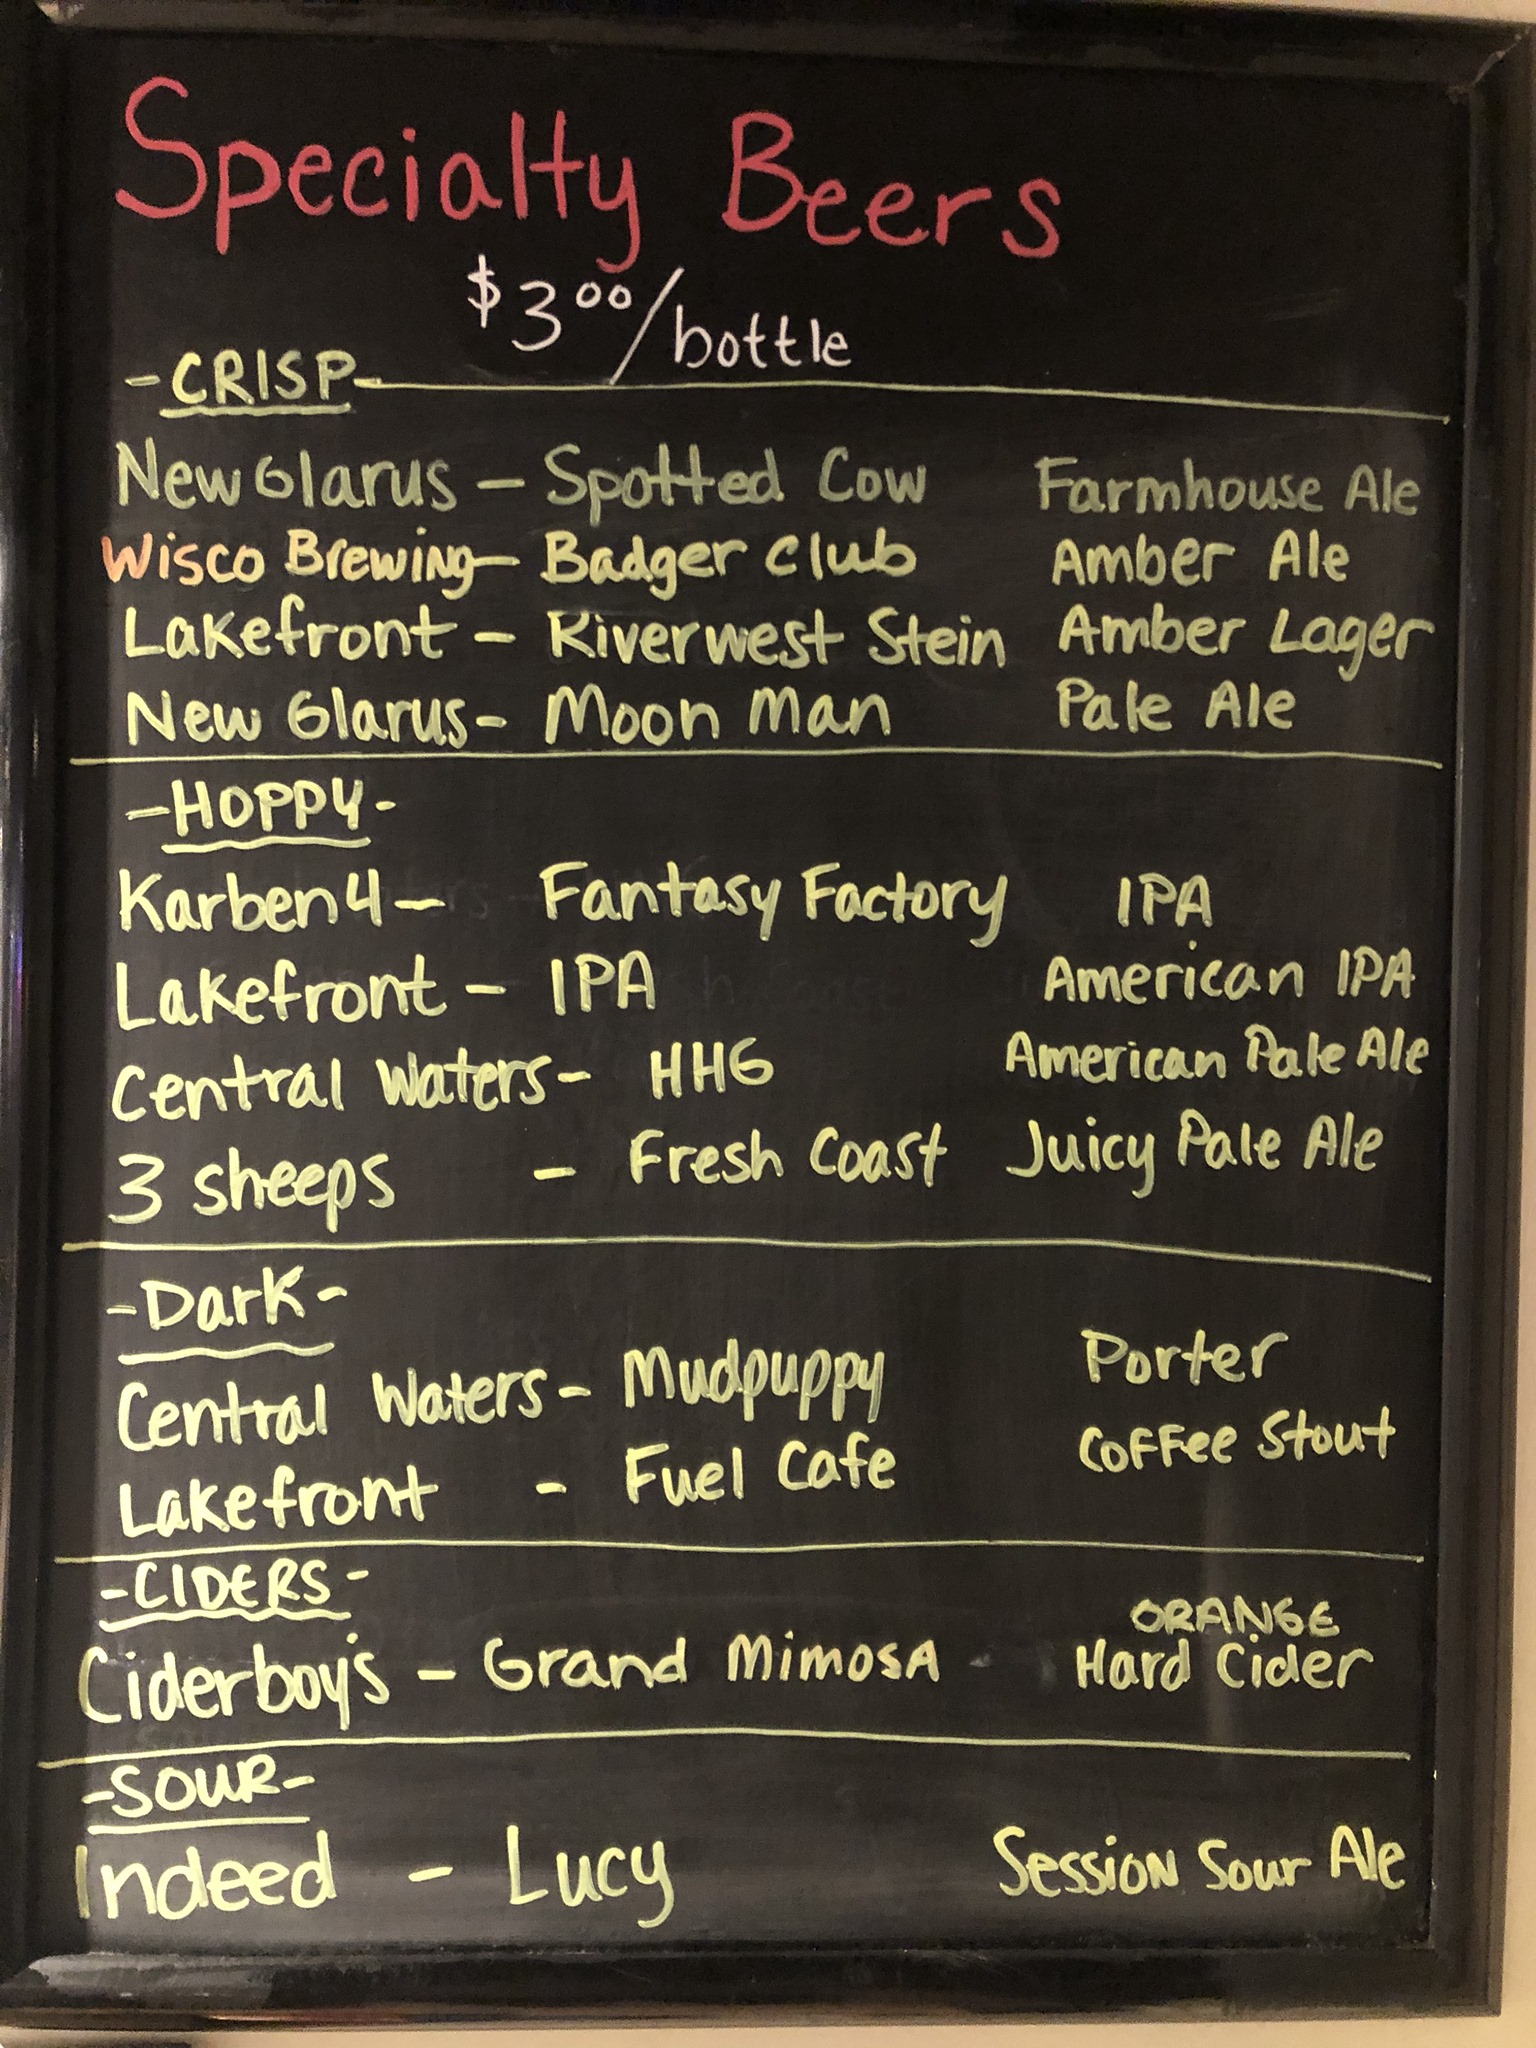 Specialty Beers
$3.00/bottle
-CRISP-
New Glarus - Spotted Cow Farmhouse Ale
Wisco Brewing - Badger Club Amber Ale
Lakefront - Riverwest Stein Amber Lager
New Glarus - Moon Man Pale Ale
-HOPPY-
Karben4 - Fantasy Factory IPA
Lakefront - IPA American IPA
Central Waters - HHG American Pale Ale
3 sheeps - Fresh Coast Juicy Pale Ale
-Dark-
Central Waters - Mudpuppy Porter
Lakefront - Fuel Cafe Coffee Stout
-CIDERS-
Ciderboy's - Grand Mimosa - ORANGE
Hard Cider
-SOUR-
Indeed - Lucy Session Sour Ale